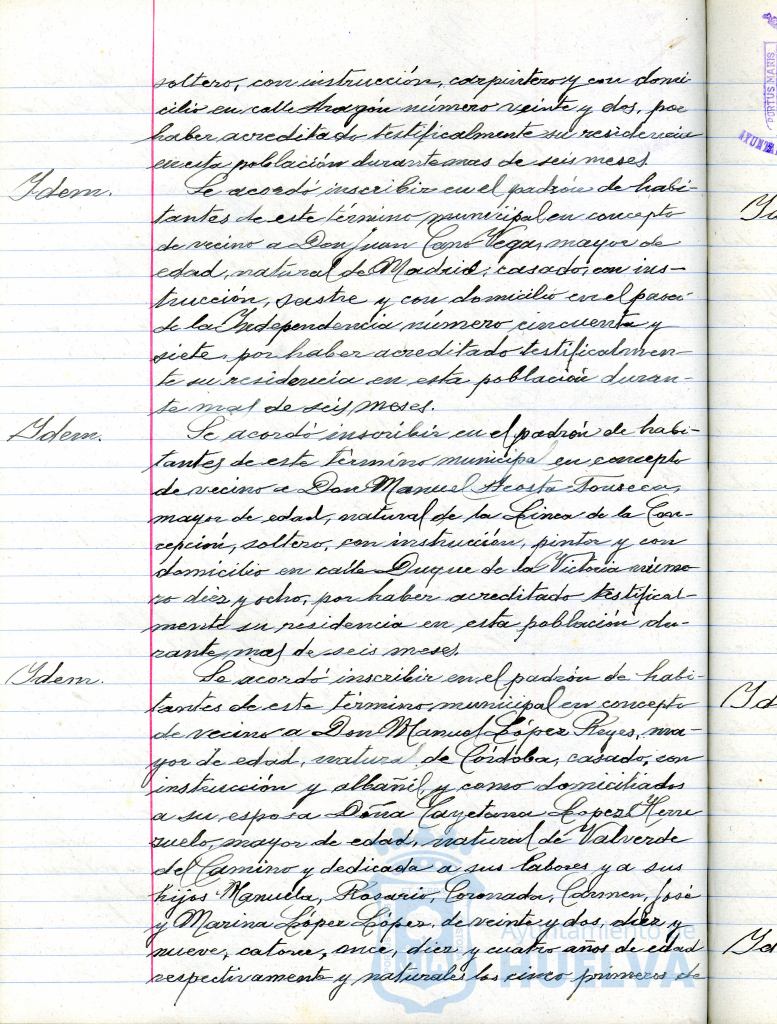 soltero, con instrucción, carpintero y con domi
cilio en calle Aragón número veinte y dos, por
haber acreditado testificalmente su residencia
en esta población durante mas de seis meses.
Idem.
Se acordó inscribir en el padrón de habi-
tantes de este término municipal en concepto
de vecino a Don Juan Cano Vegas, mayor de
edad, natural de Madrid, casado, con ins-
trucción, sastre y con domicilio en el paseo
de la Independencia número cincuenta y
siete, por haber acreditado testificalmen-
te su residencia en esta población duran-
te mas de seis meses.
Idem.
Se acordó inscribir en el padrón de habi-
tantes de este término municipal en concepto
de vecino a Don Manuel Acosta Fonseca,
mayor de edad, natural de la Linea de la Con-
cepción, soltero, con instrucción, pintor y con
domicilio en calle Duque de la Victoria núme
ro diez y ocho, por haber acreditado testifical-
mente su residencia en esta población du-
rante mas de seis meses.
Idem.
Se acordó inscribir en el padrón de habi-
tantes de este término municipal en concepto
de vecino a Don Manuel López Reyes, ma-
yor de edad, natural de Córdoba, casado, con
instrucción y albañil, y como domiciliados
a su esposa Doña Cayetana Lopez Herre
zuelo, mayor de edad, natural de Valverde
del Camino y dedicada a sus labores y a sus
hijos Manuela, Rosario, Coronada, Carmen, José
y Marina López López, de veinte y dos, diez y
nueve, catorce, once, diez y cuatro años de edad
respectivamente y naturales los cinco primeros de
Ayuntamiento de
HUELVA
PORTUS MARIS